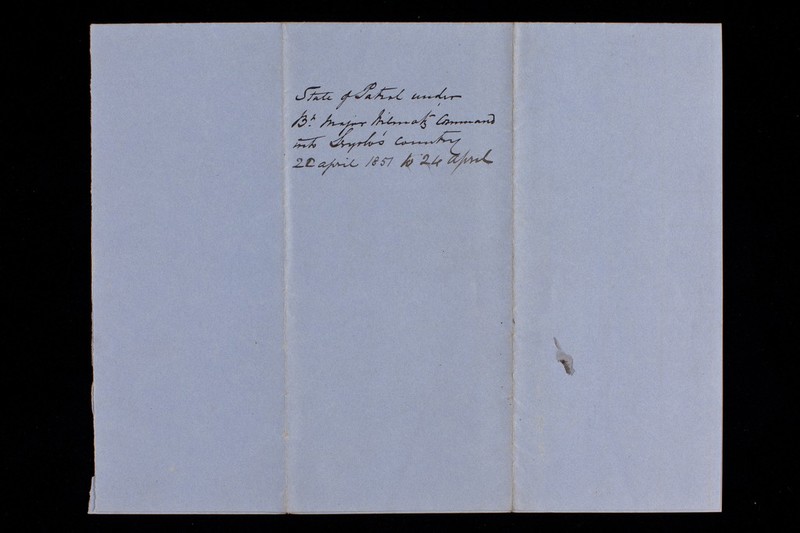 State of Patrol under
Bt. Major Wilmot's Command
into Seyolo's country
2 april 1851 to 24 April